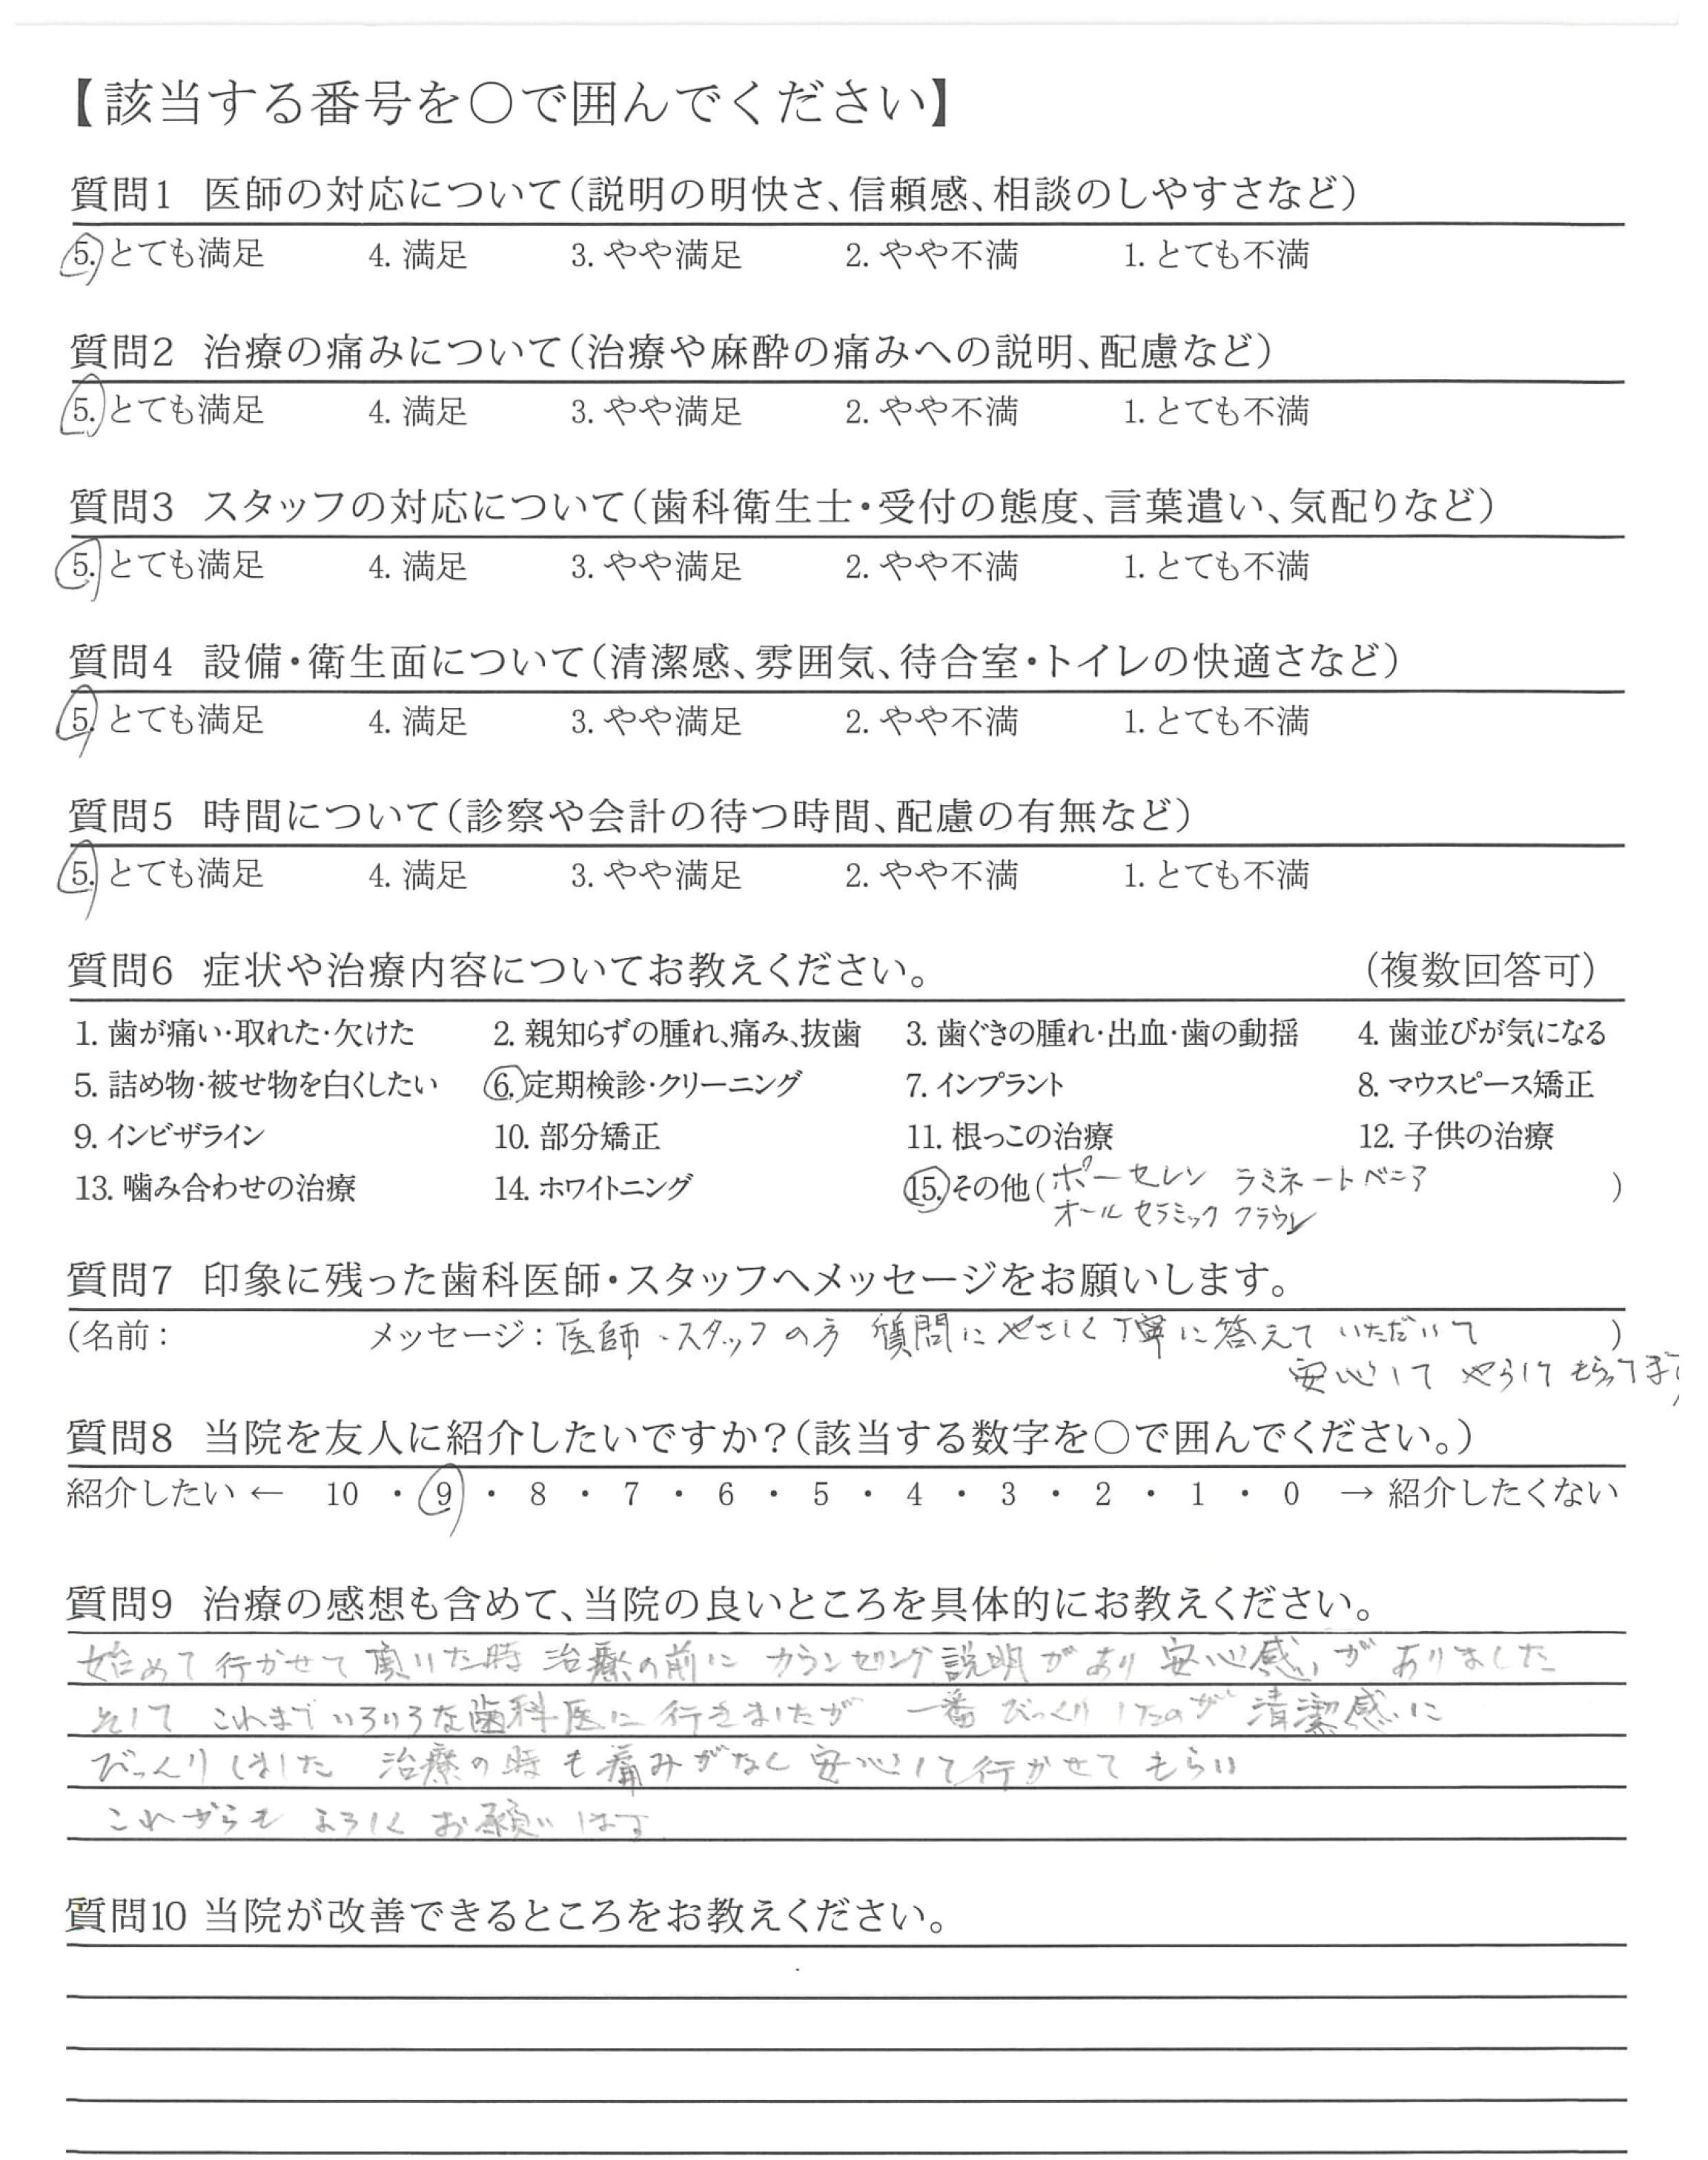 【該当する番号を○で囲んでください】
質問1 医師の対応について(説明の明快さ、信頼感、相談のしやすさなど)
5. とても満足 4. 満足 3. やや満足 2. やや不満 1. とても不満
質問2 治療の痛みについて(治療や麻酔の痛みへの説明、配慮など)
5. とても満足 4. 満足 3. やや満足 2. やや不満 1. とても不満
質問3 スタッフの対応について(歯科衛生士・受付の態度、言葉遣い、気配りなど)
5. とても満足 4. 満足 3. やや満足 2. やや不満 1. とても不満
質問4 設備・衛生面について(清潔感、雰囲気、待合室・トイレの快適さなど)
5. とても満足 4. 満足 3. やや満足 2. やや不満 1. とても不満
質問5 時間について(診察や会計の待つ時間、配慮の有無など)
5. とても満足 4. 満足 3. やや満足 2. やや不満 1. とても不満
質問6 症状や治療内容についてお教えください。 (複数回答可)
1. 歯が痛い・取れた・欠けた 2. 親知らずの腫れ、痛み、抜歯 3. 歯ぐきの腫れ・出血・歯の動揺 4. 歯並びが気になる
5. 詰め物・被せ物を白くしたい 6. 定期検診・クリーニング 7. インプラント 8. マウスピース矯正
9. インビザライン 10. 部分矯正 11. 根っこの治療 12. 子供の治療
13. 噛み合わせの治療 14. ホワイトニング 15. その他(ポーセレン ラミネートベニア )
オールセラミック クラウン
質問7 印象に残った歯科医師・スタッフへメッセージをお願いします。
(名前: メッセージ:医師・スタッフの方 質問にやさしく丁寧に答えていただいて )
安心して やらして もらってます
質問8 当院を友人に紹介したいですか?(該当する数字を○で囲んでください。)
紹介したい ← 10 ・ 9 ・ 8 ・ 7 ・ 6 ・ 5 ・ 4 ・ 3 ・ 2 ・ 1 ・ 0 → 紹介したくない
質問9 治療の感想も含めて、当院の良いところを具体的にお教えください。
始めて行かせて頂いた時 治療の前に カランセリング説明があり 安心感がありました
そして これまでいろいろな歯科医に行きましたが 一番びっくりしたのが清潔感に
びっくりしました 治療の時も痛みがなく安心して行かせてもらい
これからも よろしくお願いします
質問10 当院が改善できるところをお教えください。